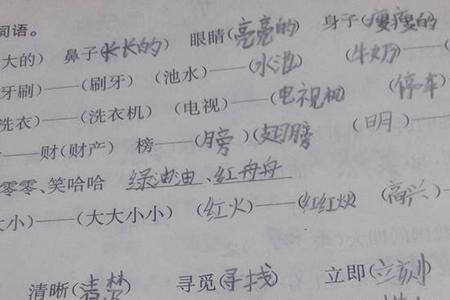 词语。
大的) 鼻子(长长的) 眼睛(亮亮的) 身子(瘦瘦的
牙刷)——(刷牙) (池水)——(水池) (牛奶)——(
洗衣)——(洗衣机) (电视)——(电视机) (停车)
——财(财产) 榜——(膀)(翅膀) (日月)——
零零、笑哈哈 绿油油、红舟舟
大小)——(大大小小) (红火)——(红红火火 (高兴)——
清晰(清楚) 寻觅(寻找) 立即(立刻)